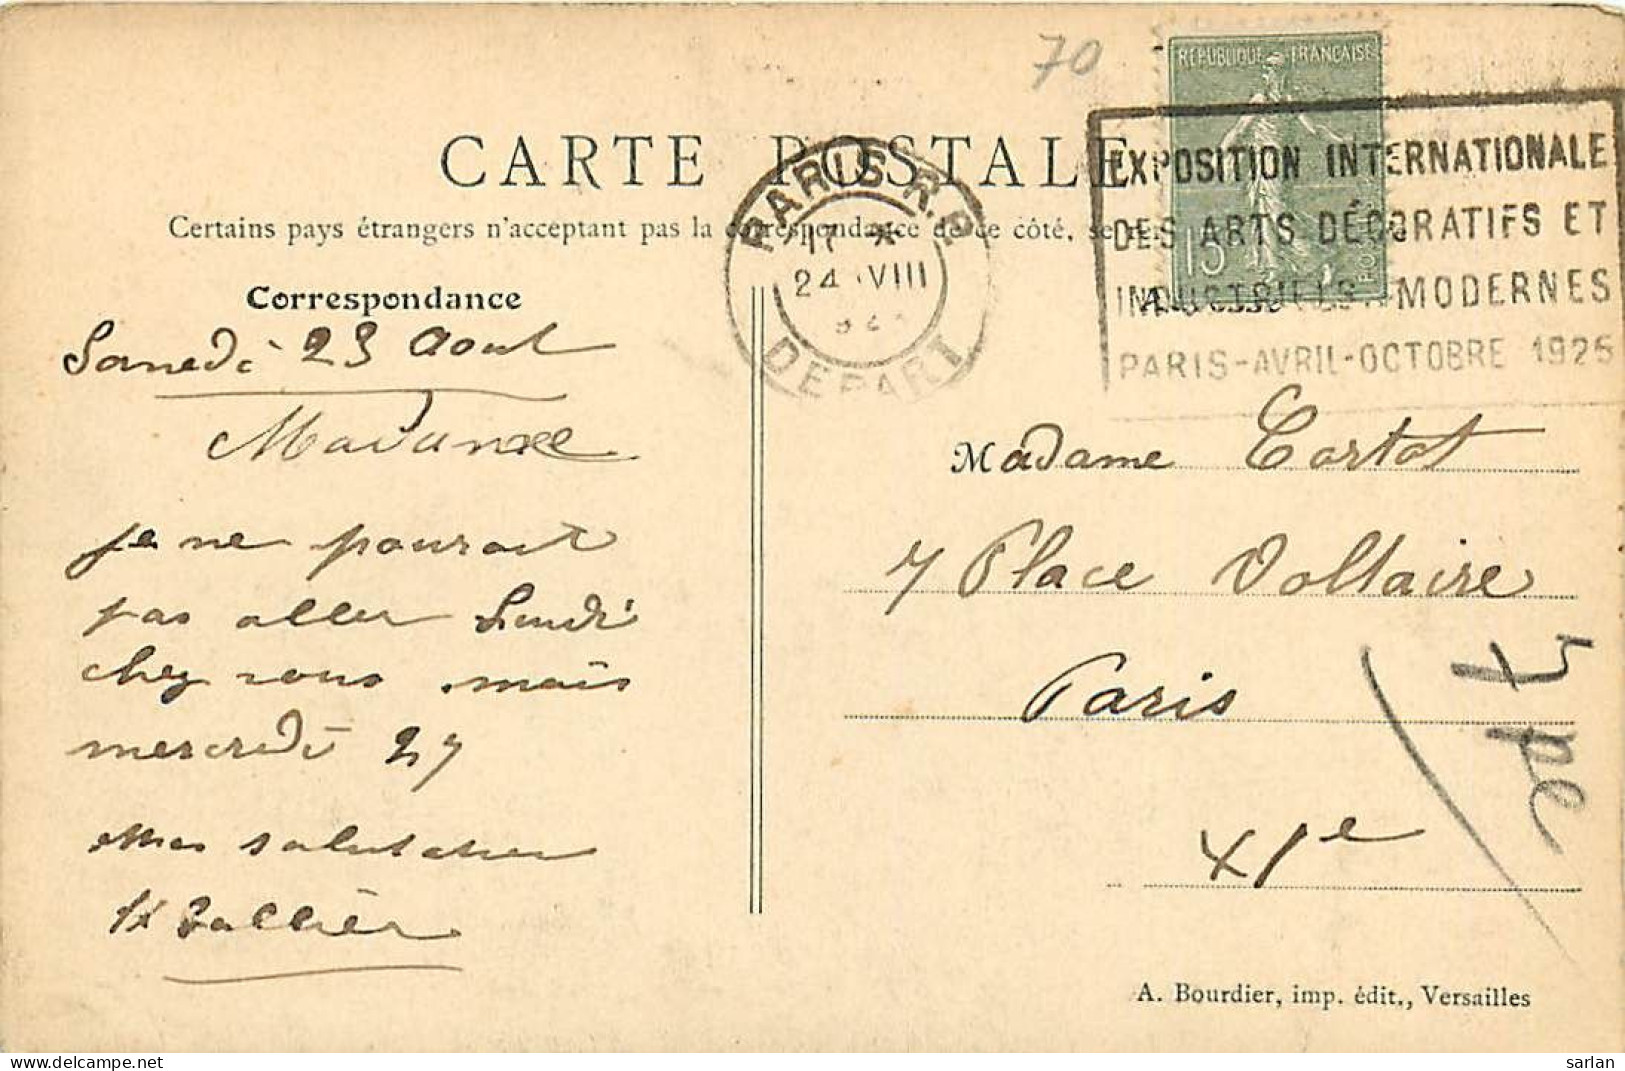 70
RÉPUBLIQUE FRANÇAISE
15
CARTE POSTALE
PARIS R.P.
17
24 VIII
DEPART
EXPOSITION INTERNATIONALE
DES ARTS DÉCORATIFS ET
INDUSTRIELS MODERNES
PARIS-AVRIL-OCTOBRE 1925
Certains pays étrangers n'acceptant pas la correspondance de ce côté, se
Correspondance
Samedi 23 Aout
Madame
je ne pourait
pas aller Lundi
chez vous mais
mercredi 27
Mes salutation
Madame Cortot
7 Place Voltaire
Paris
XIe
A. Bourdier, imp. édit., Versailles
sarlan